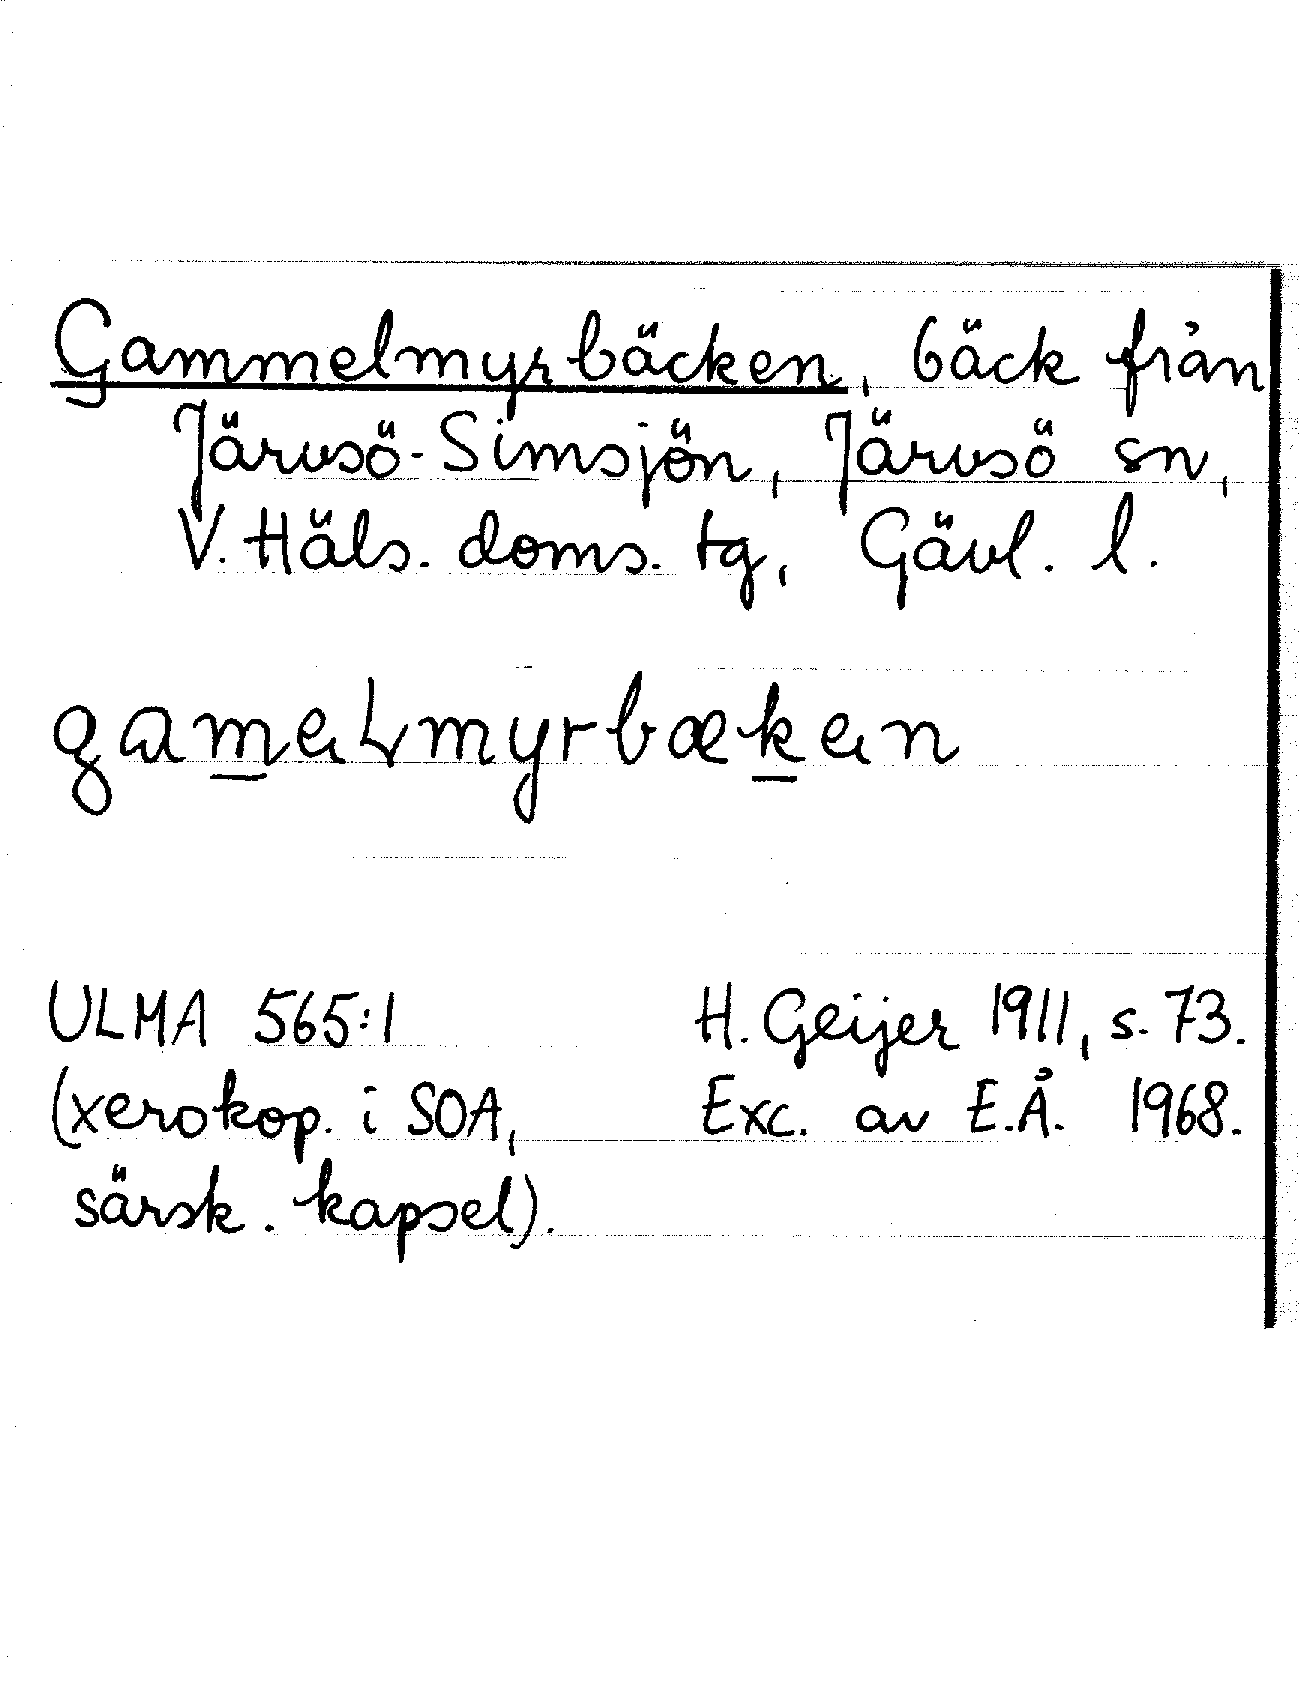 Gammelmyrbäcken, bäck från
Järvsö-Simsjön, Järvsö sn,
V. Häls. doms. tg, Gävl. l.
gamelmyrbæken
ULMA 565:1 H. Geijer 1911, s. 73.
(xerokop. i SOA, Exc. av E.Å. 1968.
särsk. kapsel).